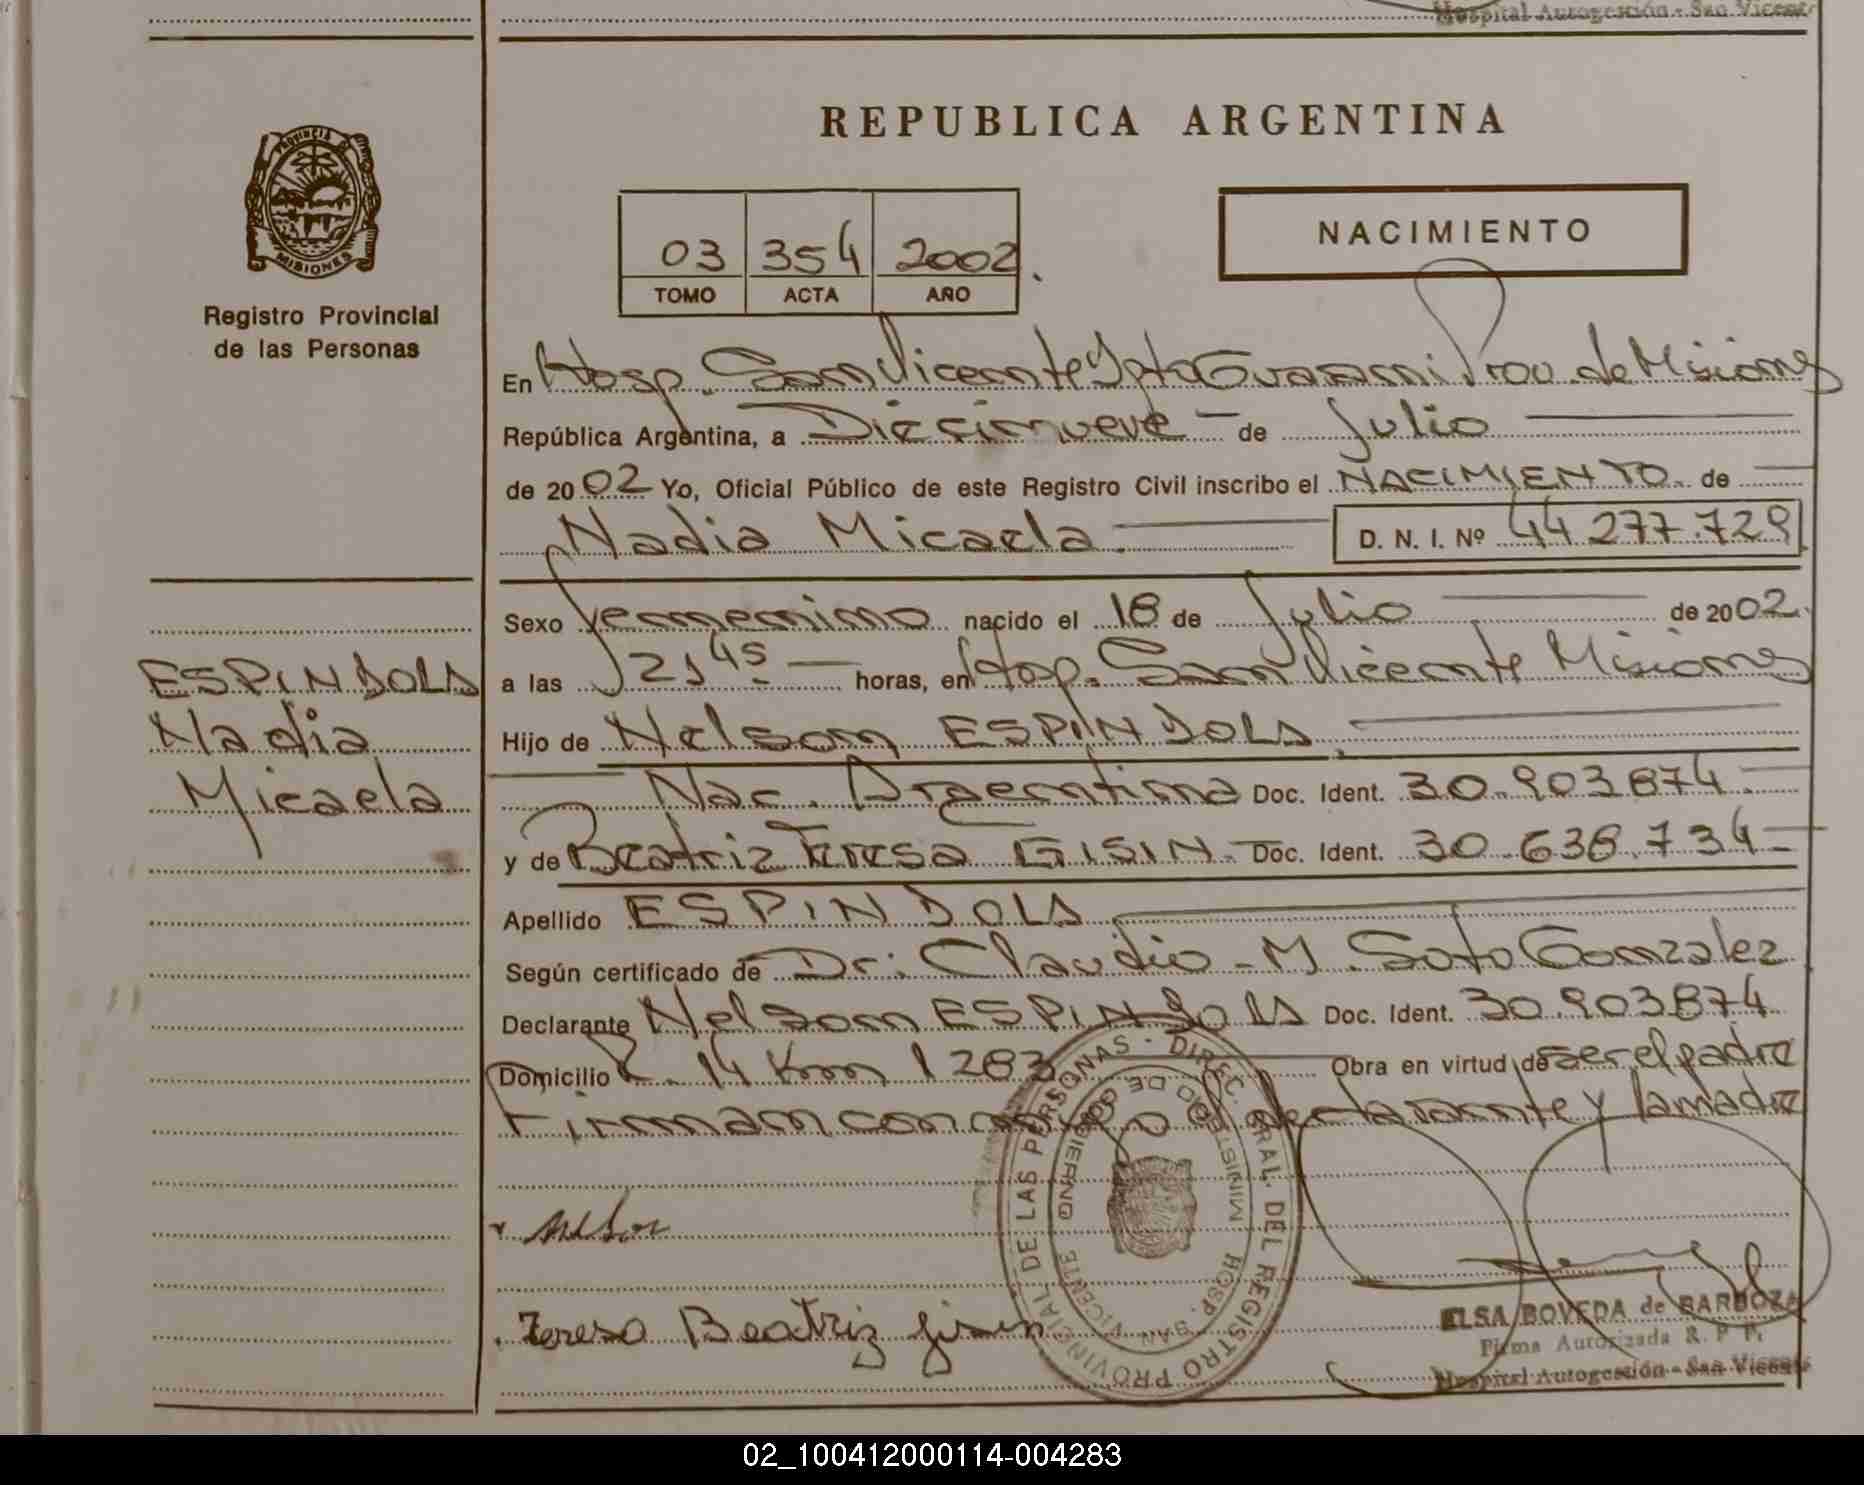 Hospital Autogestión - San Vicente
PROVINCIA DE
MISIONES
Registro Provincial
de las Personas
REPUBLICA ARGENTINA
03 354 2002.
TOMO ACTA AÑO
NACIMIENTO
En Hosp. San Vicente Dpto Guarani Prov. de Misiones
República Argentina, a Diecinueve — de Julio
de 2002 Yo, Oficial Público de este Registro Civil inscribo el NACIMIENTO de
Nadia Micaela. D. N. I. Nº 44 277.729
Sexo femenino nacido el 18 de Julio de 2002.
a las 21 45 — horas, en Hosp. San Vicente Misiones
Hijo de Nelson ESPINDOLA.
Nac. Argentina Doc. Ident. 30.903874
y de Beatriz Teresa GISIN. Doc. Ident. 30.638.734
Apellido ESPINDOLA
Según certificado de Dr. Claudio - M. Soto Gonzalez
Declarante Nelson ESPINDOLA Doc. Ident. 30.903.874
Domicilio R. 14 Km 1283 Obra en virtud de ser el padre
Firman conmigo el declarante y la madre
ESPINDOLA
Nadia
Micaela
Nelson
Teresa Beatriz gisin
DIREC. GRAL. DEL REGISTRO PROVINCIAL DE LAS PERSONAS
MINISTERIO DE GOBIERNO
HOSP. SAN VICENTE
ELSA BOVEDA de BARBOZA
Firma Autorizada R. P. P.
Hospital Autogestión - San Vicente
02_100412000114-004283